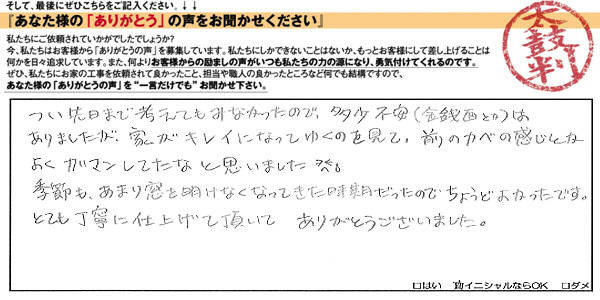 そして、最後にぜひこちらをご記入ください。↓↓
『あなた様の「ありがとう」の声をお聞かせください』
私たちにご依頼されていかがでしたでしょうか?
今、私たちはお客様から「ありがとうの声」を募集しています。私たちにしかできないことはないか、もっとお客様にして差し上げることは
何かを日々追求しています。また、何よりお客様からの励ましの声がいつも私たちの力の源になり、勇気付けてくれるのです。
ぜひ、私たちにお家の工事を依頼されて良かったこと、担当や職人の良かったところなど何でも結構ですので、
あなた様の「ありがとうの声」を“一言だけでも”お聞かせ下さい。
太鼓判
つい先日まで考えてもみなかったので、多少不安(金銭面とか)は
ありましたが、家がキレイになってゆくのを見て、前のカベの感じとか
よくガマンしてたな と思いました 笑。
季節も、あまり窓を明けなくなってきた時期だったのでちょうどよかったです。
とても丁寧に仕上げて頂いて ありがとうございました。
□はい イニシャルならOK □ダメ